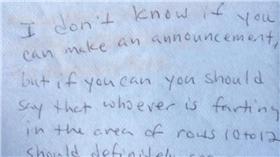 I don't know if you
can make an announcement,
but if you can you should
say that whoever is farting
in the area of rows 10 to 12
should definitely